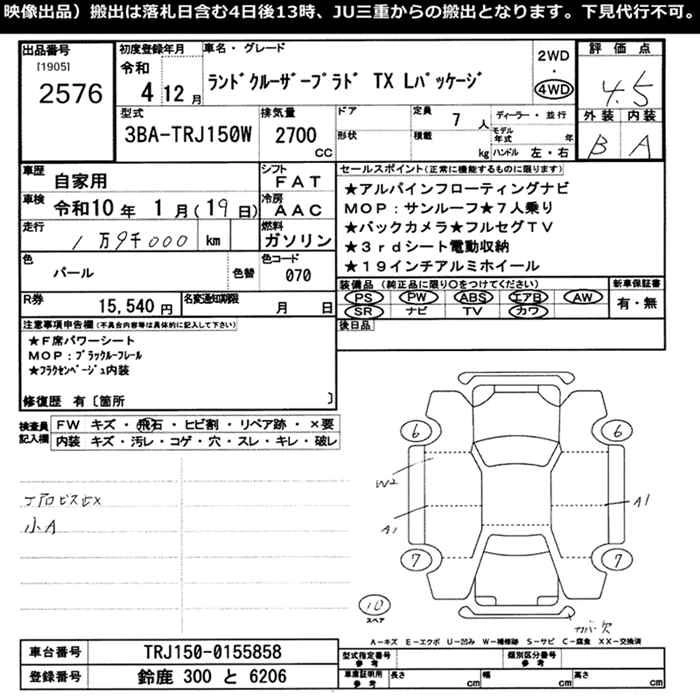 映像出品）搬出は落札日含む4日後13時、JU三重からの搬出となります。下見代行不可。
出品番号 初度登録年月 車名・グレード 2WD・4WD 評価点
[1905]
2576 令和 4 12月 ランドクルーザープラド TX Lパッケージ 4.5
外装 内装
B A
型式 排気量 ドア 定員 7人 ディーラー・並行
3BA-TRJ150W 2700cc 形状 積載 kg モデル年式 年
ハンドル 左・右
車歴 自家用 シフト FAT
車検 令和10年 1月(19日) 冷房 AAC
走行 1万9千000 km 燃料 ガソリン
色 パール 色替 色コード 070
R券 15,540円 名変通知期限 月 日
セールスポイント(正常に機能するものに限ります)
★アルパインフローティングナビ
MOP:サンルーフ★7人乗り
★バックカメラ★フルセグTV
★3rdシート電動収納
★19インチアルミホイール
装備品(純正品に限り○をつけてください) 新車保証書
PS PW ABS エアB AW 有・無
SR ナビ TV カワ
後日品
注意事項申告欄(不具合内容等は具体的に記入して下さい)
★F席パワーシート
MOP:ブラックルーフレール
★フラクセンベージュ内装
修復歴 有〔箇所 〕
検査員記入欄 FW キズ・飛石・ヒビ割・リペア跡・×要
内装 キズ・汚レ・コゲ・穴・スレ・キレ・破レ
小A
6 6
W2
A1 A1
7 7
10
スペア
A-キズ E-エクボ U-凹み W-補修跡 S-サビ C-腐食 XX-交換済
車台番号 TRJ150-0155858 型式指定番号 参考 類別区分番号 参考
登録番号 鈴鹿 300 と 6206 車庫証明用 参考 長さ cm 幅 cm 高さ cm